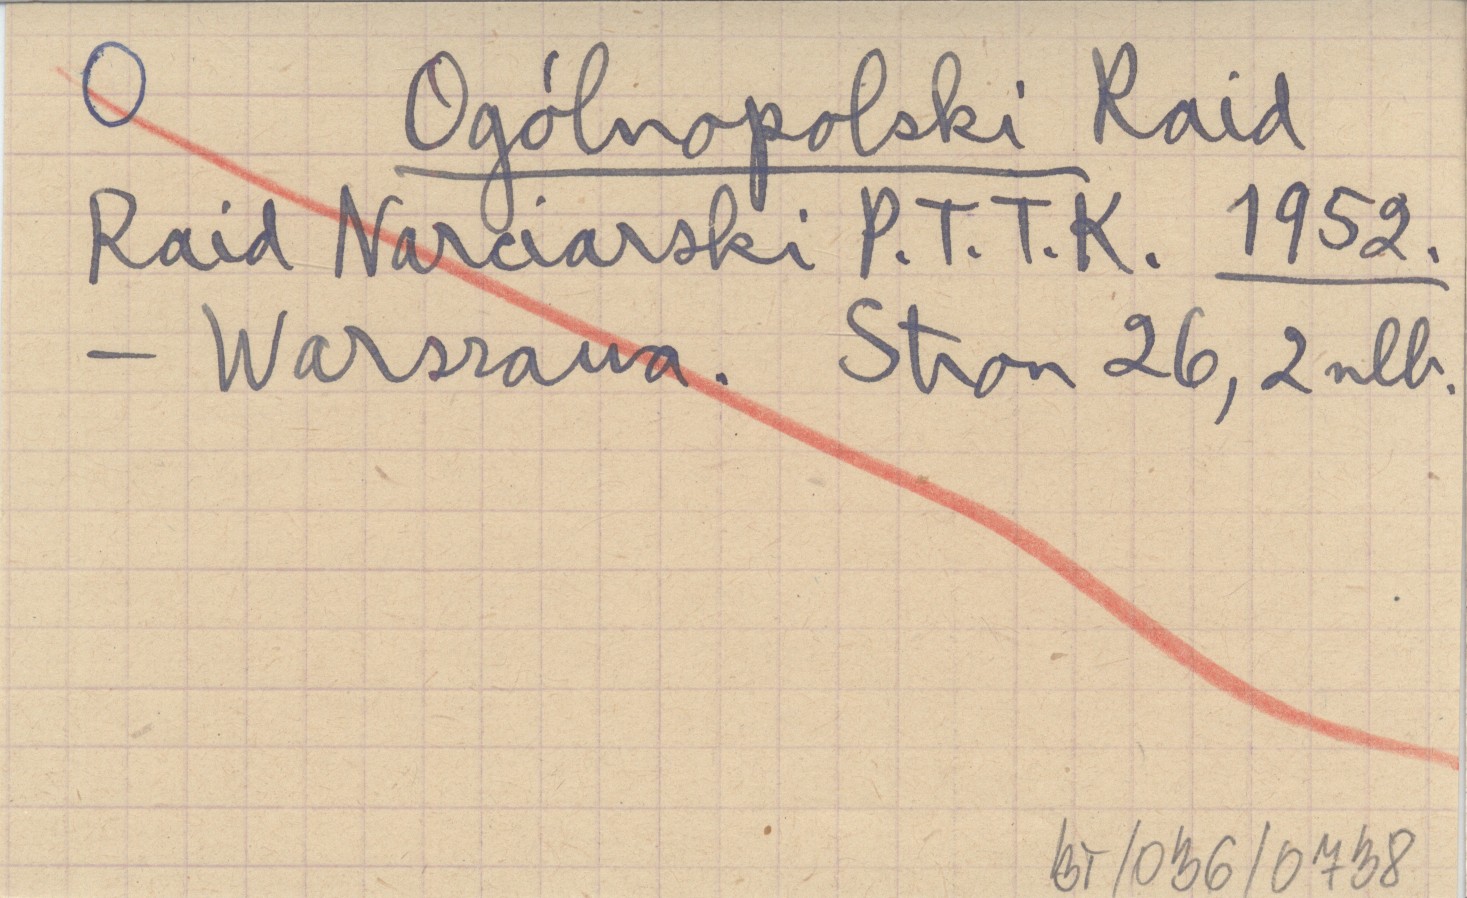 O Ogólnopolski Raid
Raid Narciarski P.T.T.K. 1952.
– Warszawa. Stron 26, 2 nlb.
BT/036/0738